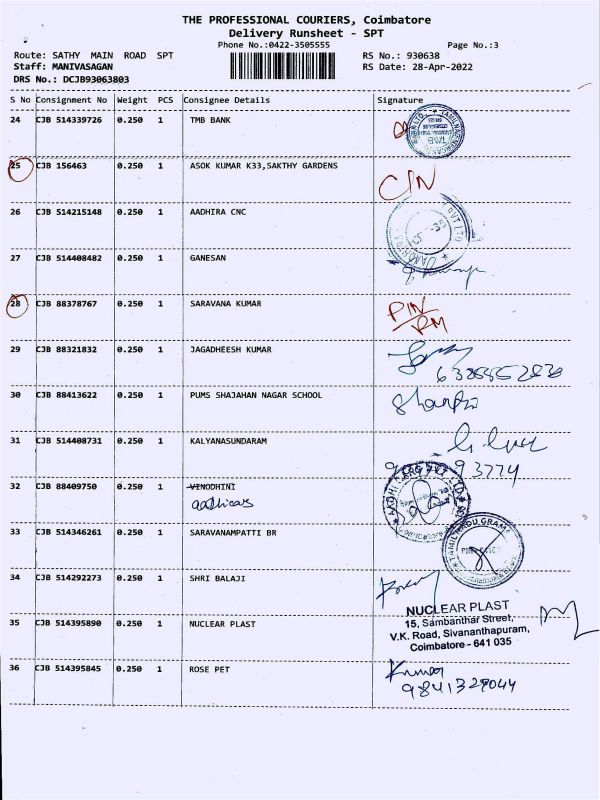 THE PROFESSIONAL COURIERS, Coimbatore
Delivery Runsheet - SPT
Phone No.:0422-3505555 Page No.:3
Route: SATHY MAIN ROAD SPT RS No.: 930638
Staff: MANIVASAGAN RS Date: 28-Apr-2022
DRS No.: DCJB93063803
S No Consignment No Weight PCS Consignee Details Signature
24 CJB 514339726 0.250 1 TMB BANK
25 CJB 156463 0.250 1 ASOK KUMAR K33,SAKTHY GARDENS
26 CJB 514215148 0.250 1 AADHIRA CNC
27 CJB 514408482 0.250 1 GANESAN
28 CJB 88378767 0.250 1 SARAVANA KUMAR PIN/RM
29 CJB 88321832 0.250 1 JAGADHEESH KUMAR
30 CJB 88413622 0.250 1 PUMS SHAJAHAN NAGAR SCHOOL
31 CJB 514408731 0.250 1 KALYANASUNDARAM
93774
32 CJB 88409750 0.250 1 VINODHINI
33 CJB 514346261 0.250 1 SARAVANAMPATTI BR
34 CJB 514292273 0.250 1 SHRI BALAJI
35 CJB 514395890 0.250 1 NUCLEAR PLAST NUCLEAR PLAST
15, Sambanthar Street,
V.K. Road, Sivananthapuram,
Coimbatore - 641 035
36 CJB 514395845 0.250 1 ROSE PET Kumar
9841329044